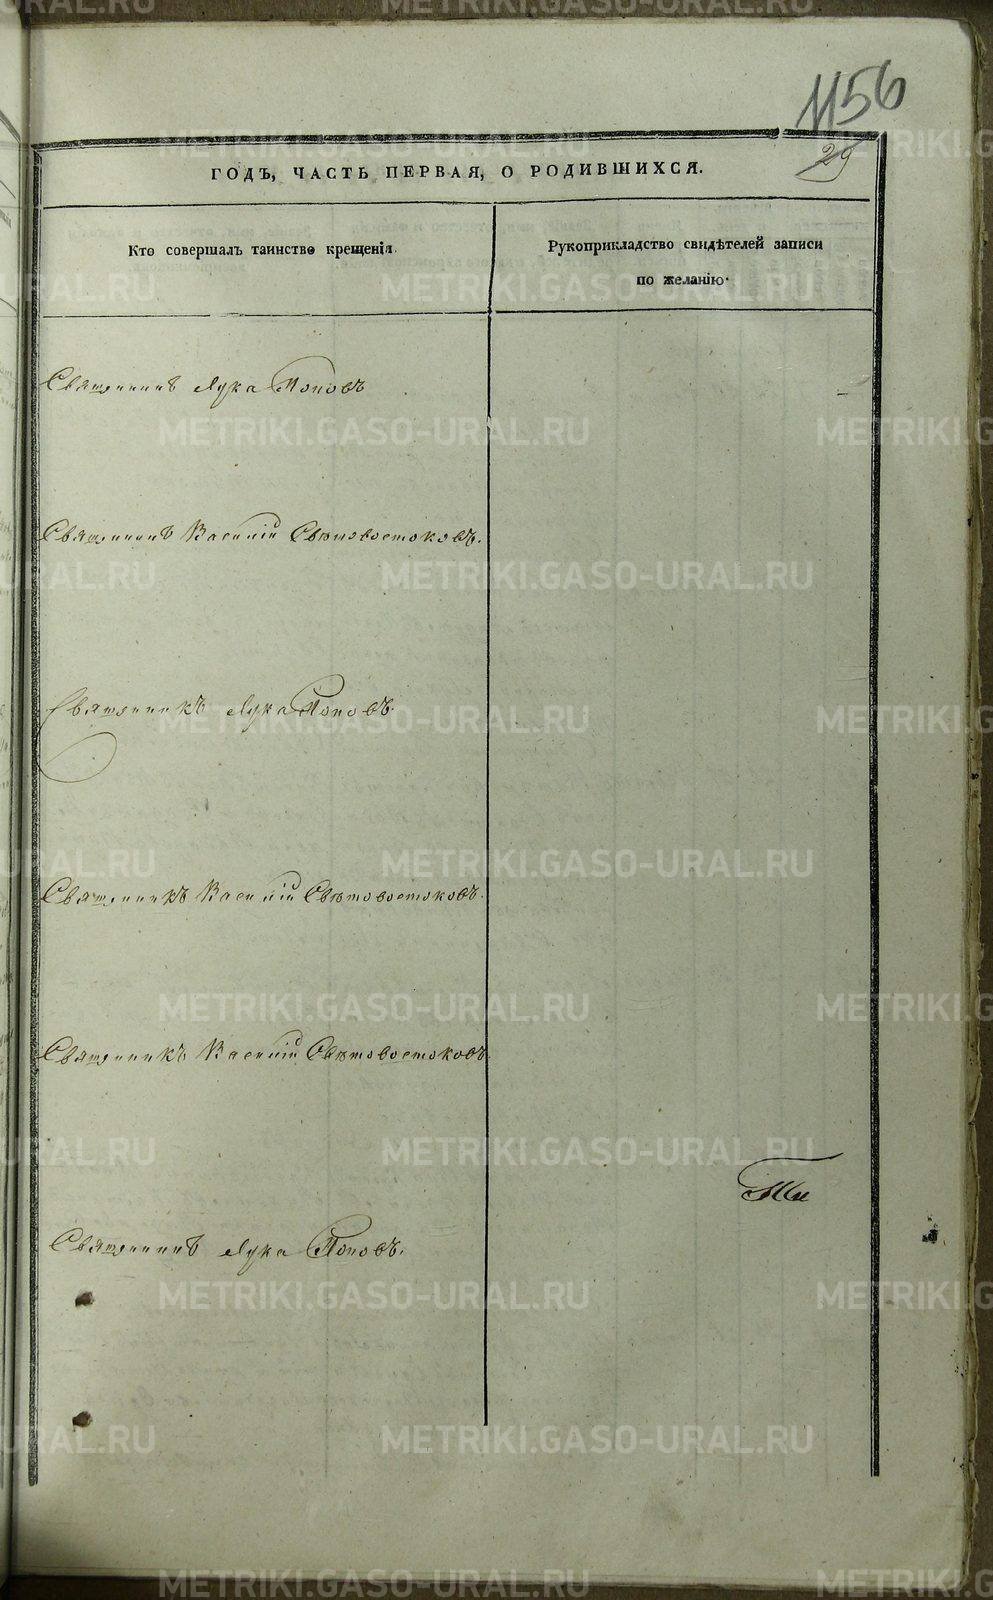 1156
29
ГОДЪ, ЧАСТЬ ПЕРВАЯ, О РОДИВШИХСЯ.
Кто совершалъ таинство крещенія.
Рукоприкладство свидѣтелей записи
по желанію.
Священникъ Лука Поповъ
Священникъ Василій Свѣтовостоковъ.
Священникъ Лука Поповъ.
Священникъ Василій Свѣтовостоковъ.
Священникъ Василій Свѣтовостоковъ.
Священникъ Лука Поповъ.
METRIKI.GASO-URAL.RU